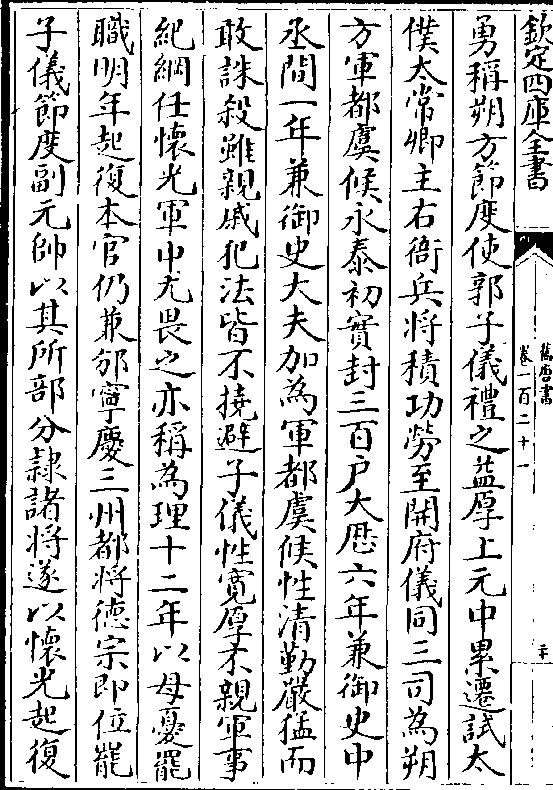 欽定四庫全書
舊唐書
卷一百二十一
二十
勇稱朔方節度使郭子儀禮之益厚上元中累遷試太
僕太常卿主右衙兵將積功勞至開府儀同三司為朔
方軍都虞候永泰初實封三百户大厯六年兼御史中
丞間一年兼御史大夫加為軍都虞候性清勤嚴猛而
敢誅殺雖親戚犯法皆不撓避子儀性寛厚不親軍事
紀綱任懷光軍中尤畏之亦稱為理十二年以母憂罷
職明年起復本官仍兼邠寧慶三州都將徳宗即位罷
子儀節度副元帥以其所部分隷諸將遂以懷光起復